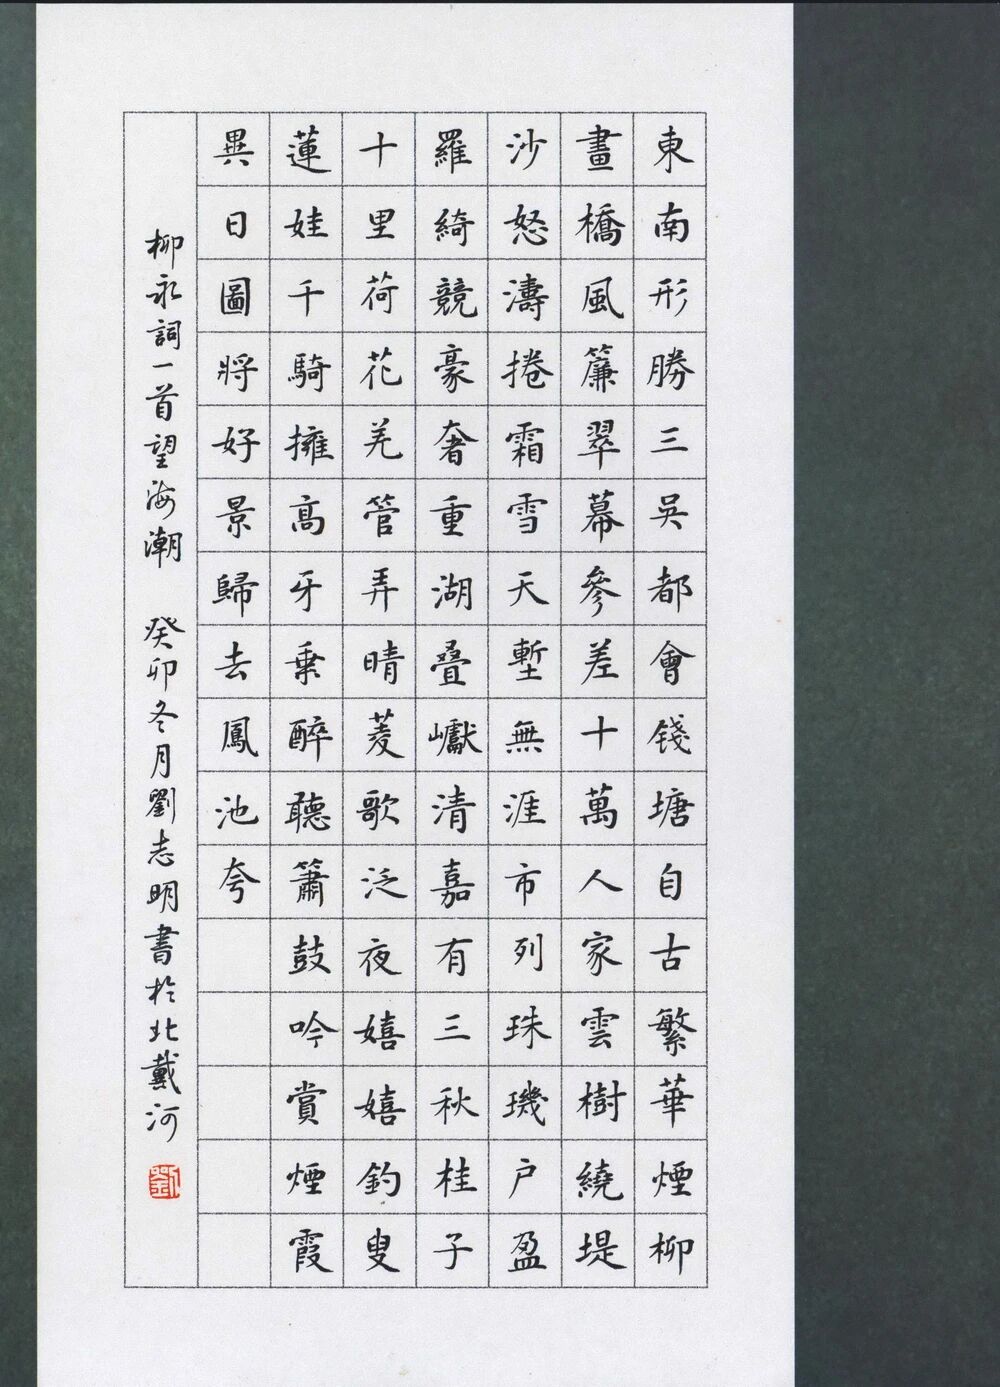 東南形勝三吳都會錢塘自古繁華煙柳
畫橋風簾翠幕參差十萬人家雲樹繞堤
沙怒濤捲霜雪天塹無涯市列珠璣户盈
羅綺競豪奢重湖疊巘清嘉有三秋桂子
十里荷花羌管弄晴菱歌泛夜嬉嬉釣叟
蓮娃千騎擁高牙乘醉聽簫鼓吟賞煙霞
異日圖將好景歸去鳳池夸
柳永詞一首望海潮 癸卯冬月劉志明書於北戴河
劉